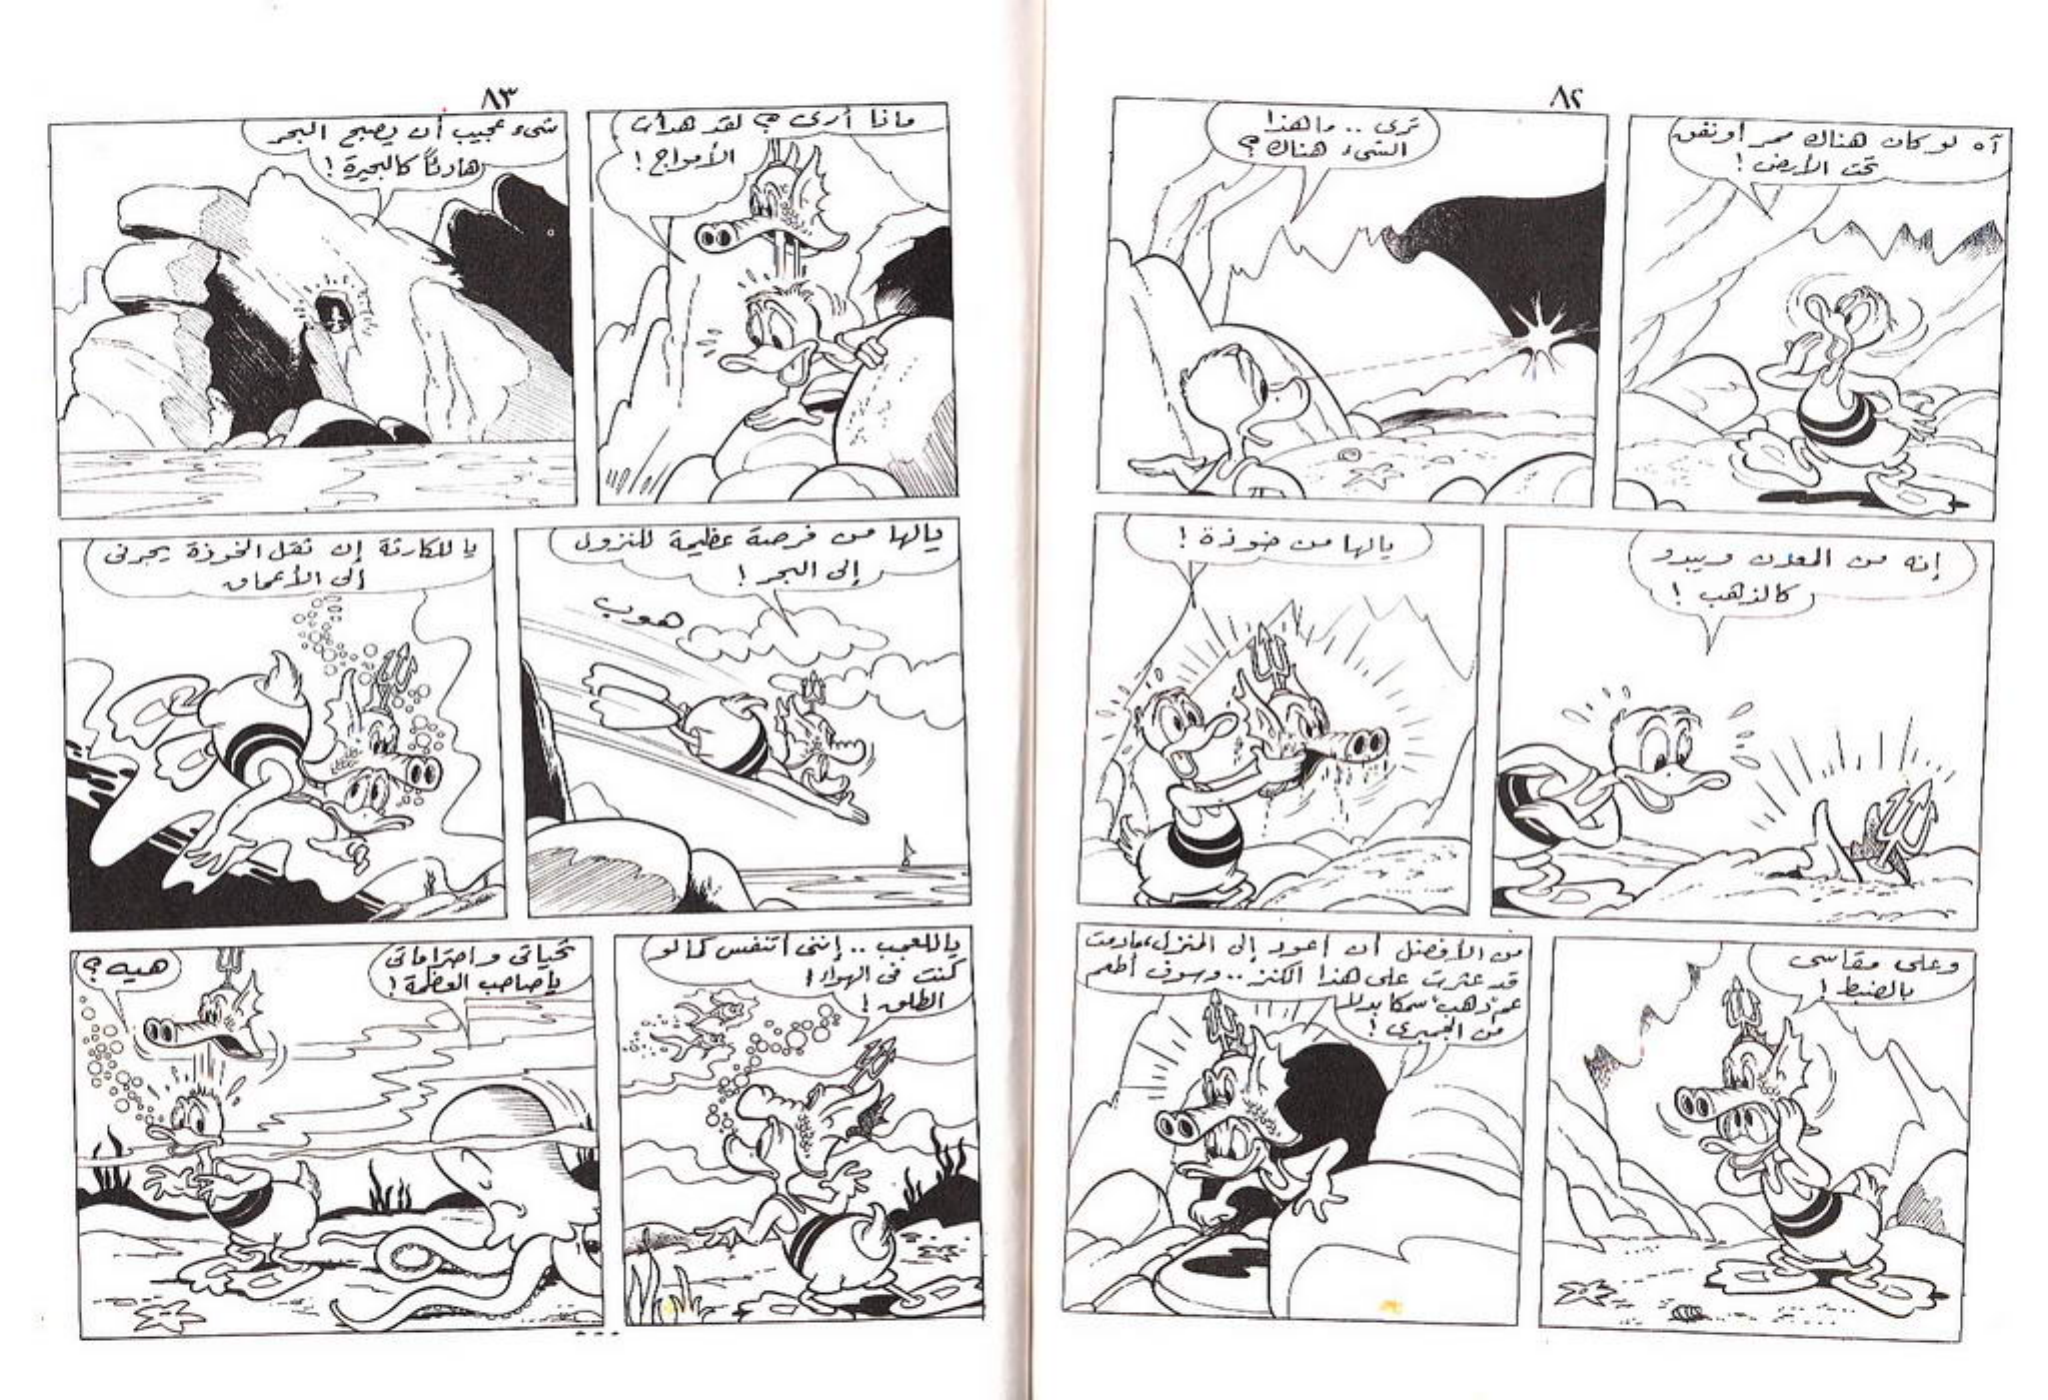 ٨٢
آه لو كان هناك ممر أو نفق
تحت الأرض !
ترى .. ما هذا
الشىء هناك ؟
إنه من المعدن ويبدو
كالذهب !
يالها من خوذة !
وعلى مقاسى
بالضبط !
من الأفضل أن أعود إلى المنزل، مادمت
قد عثرت على هذا الكنز .. وسوف أطعم
عم "دهب" سمكا بدلا
من الجمبرى !
٨٣
ماذا أرى ؟ لقد هدأت
الأمواج !
شىء عجيب أن يصبح البحر
هادئاً كالبحيرة !
يالها من فرصة عظيمة للنزول
إلى البحر !
هوب
يا للكارثة إن ثقل الخوذة يجرنى
إلى الأعماق
ياللعجب .. إننى أتنفس كما لو
كنت فى الهواء
الطلق !
تحياتى واحتراماتى
ياصاحب العظمة !
هيه ؟